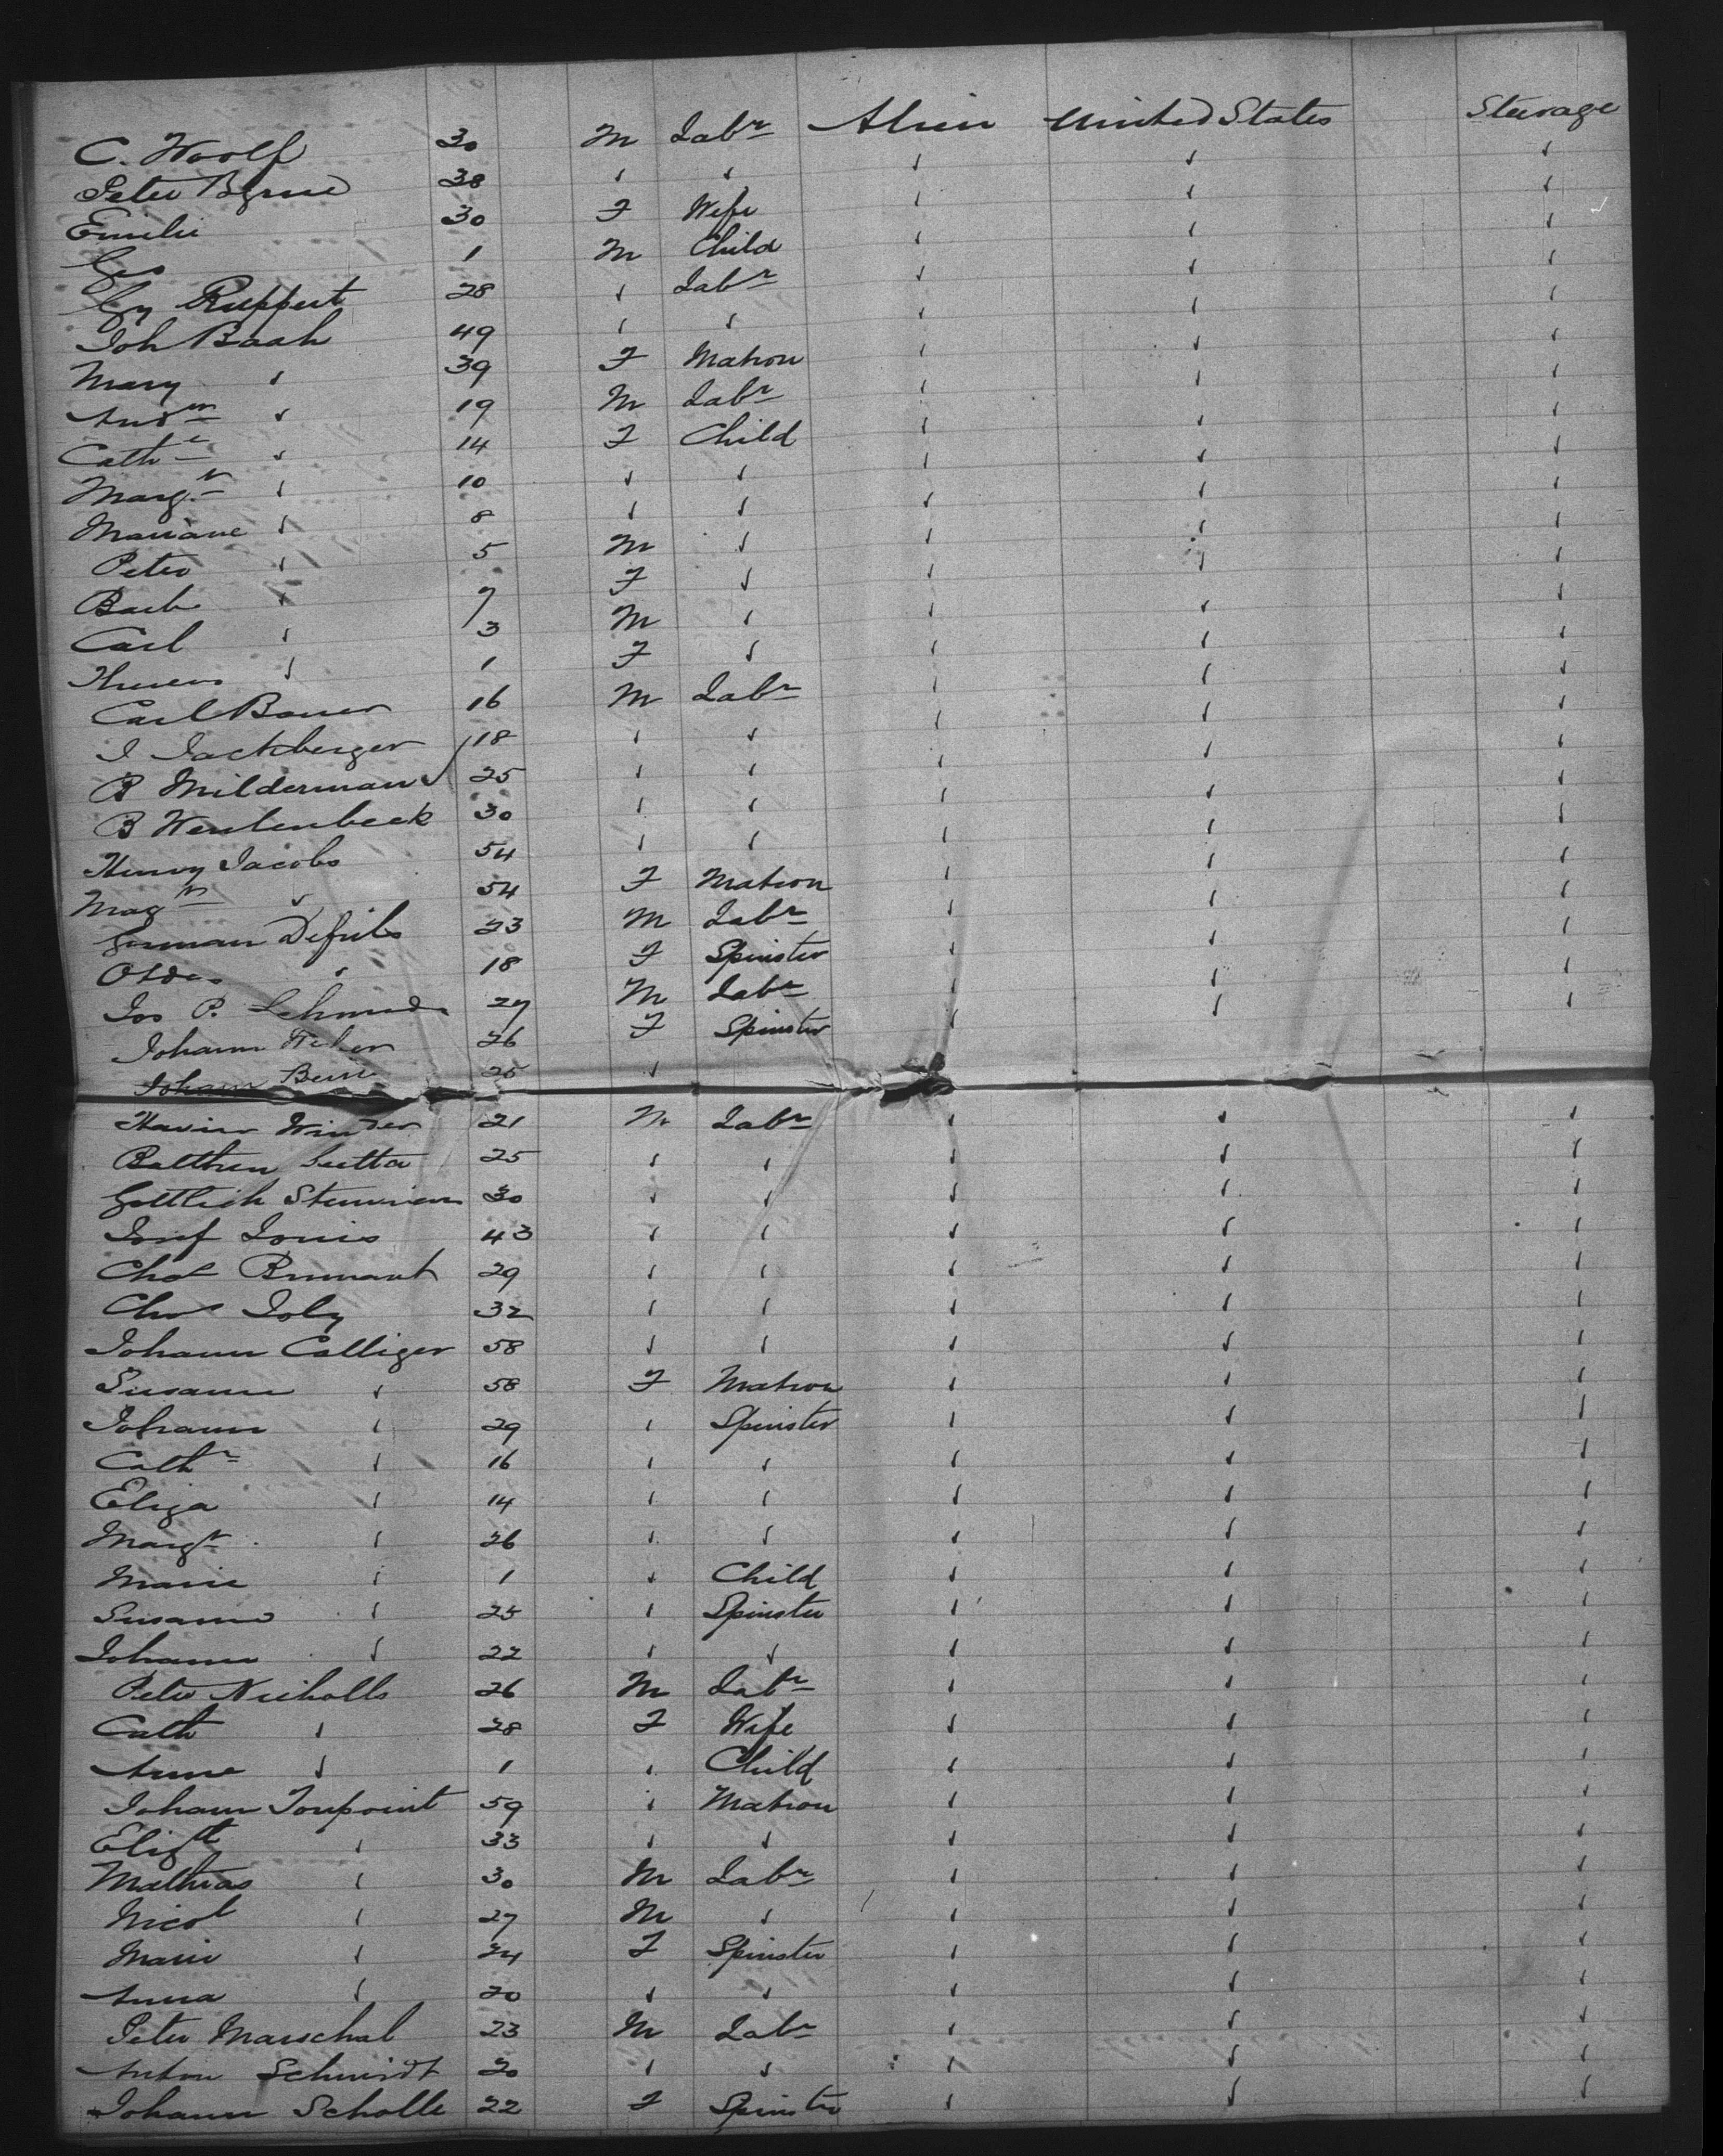 C. Woolf 30 M Labr Alien United States Steerage
Peter Byrne 38 ✓ ✓ ✓ ✓ ✓
Emilie 30 F Wife ✓ ✓ ✓
Geo 1 M Child ✓ ✓ ✓
Gy Ruppert 28 ✓ Labr ✓ ✓ ✓
Joh Bash 49 ✓ ✓ ✓ ✓ ✓
Mary ✓ 39 F Matron ✓ ✓ ✓
✓ 19 M Labr ✓ ✓ ✓
Cathe ✓ 14 F Child ✓ ✓ ✓
Margt ✓ 10 ✓ ✓ ✓ ✓ ✓
Mariane ✓ 8 ✓ ✓ ✓ ✓ ✓
Peter ✓ 5 M ✓ ✓ ✓ ✓
Barb ✓ 7 F ✓ ✓ ✓ ✓
Carl ✓ 3 M ✓ ✓ ✓ ✓
✓ 1 F ✓ ✓ ✓ ✓
Carl Bauer 16 M Labr ✓ ✓ ✓
J Jackberger 18 ✓ ✓ ✓ ✓ ✓
B Milderman 25 ✓ ✓ ✓ ✓ ✓
B Wentenbeck 30 ✓ ✓ ✓ ✓ ✓
Henry Jacobs 54 ✓ ✓ ✓ ✓ ✓
✓ 54 F Matron ✓ ✓ ✓
German 23 M Labr ✓ ✓ ✓
✓ 18 F Spinster ✓ ✓ ✓
Jos P. 27 M Labr ✓ ✓ ✓
Johann 26 F Spinster ✓ ✓ ✓
Johann 25 ✓
21 M Labr ✓ ✓ ✓
25 ✓ ✓ ✓ ✓ ✓
Gottlieb 30 ✓ ✓ ✓ ✓ ✓
Josef Louis 43 ✓ ✓ ✓ ✓ ✓
Chas 29 ✓ ✓ ✓ ✓ ✓
Chas Joly 32 ✓ ✓ ✓ ✓ ✓
Johann Calliger 58 ✓ ✓ ✓ ✓ ✓
Susanne ✓ 58 F Matron ✓ ✓ ✓
Johann ✓ 29 ✓ Spinster ✓ ✓ ✓
Cathr ✓ 16 ✓ ✓ ✓ ✓ ✓
Eliza ✓ 14 ✓ ✓ ✓ ✓ ✓
Margt ✓ 26 ✓ ✓ ✓ ✓ ✓
Marie ✓ 1 ✓ Child ✓ ✓ ✓
Susanne ✓ 25 ✓ Spinster ✓ ✓ ✓
Johann ✓ 22 ✓ ✓ ✓ ✓ ✓
Peter Nicholls 26 M Labr ✓ ✓ ✓
Cath ✓ 28 F Wife ✓ ✓ ✓
Anne ✓ 1 ✓ Child ✓ ✓ ✓
Johann Toupoint 59 ✓ Matron ✓ ✓ ✓
Elizth ✓ 33 ✓ ✓ ✓ ✓ ✓
Mathias ✓ 30 M Labr ✓ ✓ ✓
Nicol ✓ 27 M ✓ ✓ ✓ ✓
Marie ✓ 24 F Spinster ✓ ✓ ✓
Anna ✓ 20 ✓ ✓ ✓ ✓ ✓
Peter Marschal 23 M Labr ✓ ✓ ✓
Anton Schmidt 20 ✓ ✓ ✓ ✓ ✓
Johann Scholle 22 F Spinster ✓ ✓ ✓